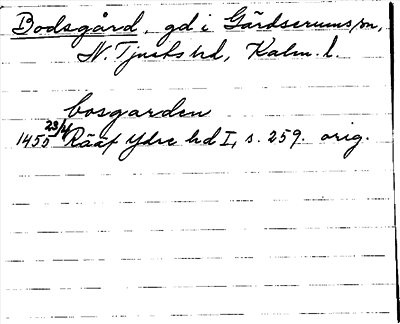 Bodsgård, gd i Gärdserums sn,
N. Tjusts hd, Kalm. l.
bosgarden
1455 23/4 Rääf Ydre hd I, s. 259. orig.